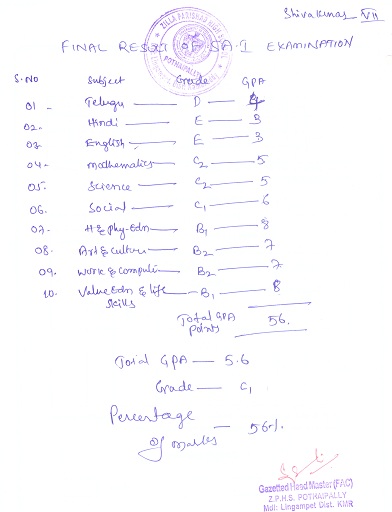 Shivakumar VII
FINAL RESULT OF SA-I EXAMINATION
S.NO Subject Grade GPA
01 - Telugu — D — 4
02 - Hindi — E — 3
03 - English — E — 3
04 - mathematics — C2 — 5
05 - Science — C2 — 5
06. Social — C1 — 6
07 - H & phy-Edn — B1 — 8
08. Art & Culture — B2 — 7
09. work & Computer — B2 — 7
10. Value Edn & life Skills — B1 — 8
Total GPA Points 56.
Total GPA — 5.6
Grade — C1
Percentage of marks — 56%
Gazetted Head Master (FAC)
Z.P.H.S. POTHAIPALLY
Mdl: Lingampet Dist. KMR